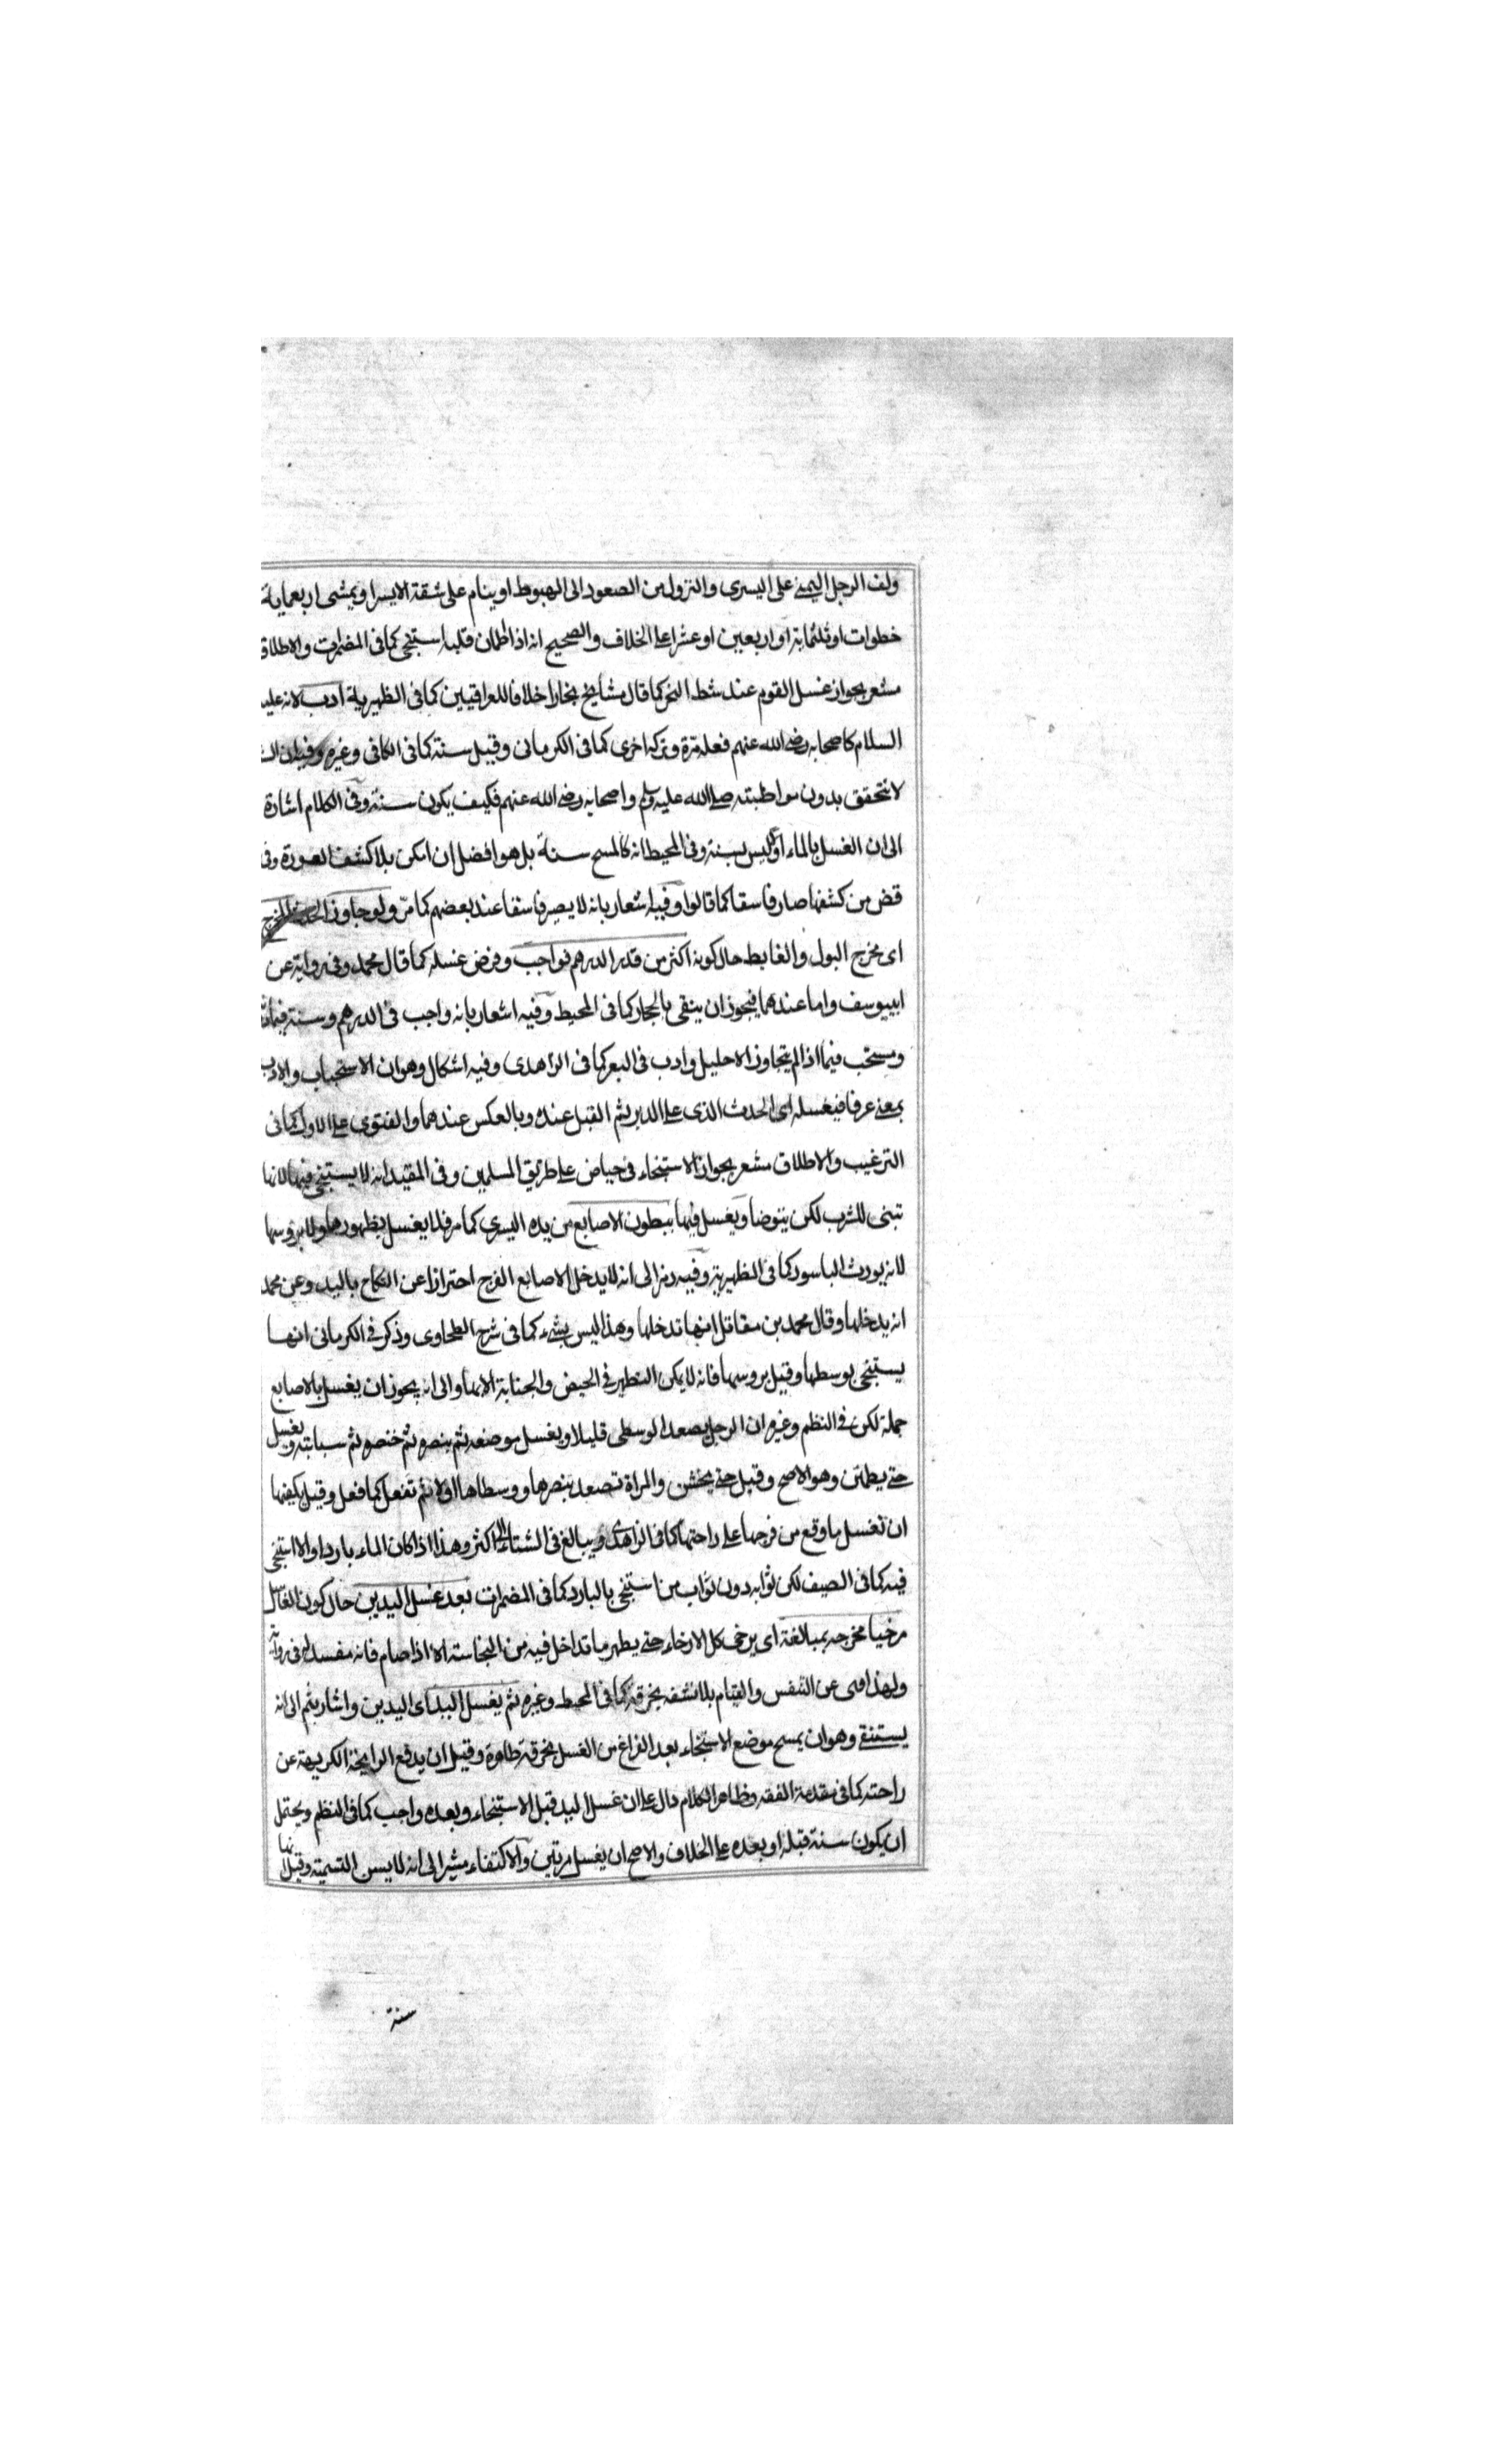 ولف الرجل اليمنى على اليسرى والنزول من الصعود الى الهبوط او ينام على شقة الايسر او يمشى اربعماية
خطوات او ثلثماية او اربعين او عشرا على الخلاف والصحيح انه اذا اطمان قلبه استنجى كما فى المضمرات والاطلاق
مشعر بجواز غسل القوم عند شط النهر كما قال مشايخ بخارا خلافا للعراقيين كما فى الظهيرية ادب لانه عليه
السلام كاصحابه رضى الله عنهم فعله مرة وتركه اخرى كما فى الكرمانى وقيل سنة كما فى الكافى وغيره وفيه ان
لا تتحقق بدون مواظبته صلى الله عليه وسلم واصحابه رضى الله عنهم فكيف يكون سنة وفى الكلام اشارة
الى ان الغسل بالماء اولا ليس بسنة وفى المحيط انه كالمسح سنة بل هو افضل ان امكن بلا كشف العورة وفى
قض من كشفها صار فاسقا كما قالوا وفيه اشعار بانه لا يصير فاسقا عند بعضهم كما مر ولو جاوز الحدث المخرج
اى مخرج البول والغايط حال كونه اكثر من قدر الدرهم فواجب وفرض غسله كما قال محمد وفى رواية عن
ابييوسف واما عندهما فيجوز ان ينقى بالحجار كما فى المحيط وفيه اشعار بانه واجب فى الدرهم وسنة فيما
ومستحب فيما اذا لم يتجاوز الاحليل وادب فى البعر كما فى الزاهدى وفيه اشكال وهو ان الاستحباب والادب
بمعنى عرفا فيغسله اى الحدث الذى على الدبر ثم القبل عنده وبالعكس عندهما والفتوى على الاول كما فى
الترغيب والاطلاق مشعر بجواز الاستنجاء فى حياض على طريق المسلمين وفى المقيد انه لا يستنجى فيها لانها
تبنى للشرب لكن يتوضا ويغسل فيها ببطون الاصابع من يده اليسرى كما مر فلا يغسل بظهورها ولا بروسها
لانه يورث الباسور كما فى الظهيرية وفيه رمز الى انه لا يدخل الاصابع الفرج احترازا عن النكاح باليد وعن محمد
انه يدخلها وقال محمد بن مقاتل انها تدخلها وهذا ليس بشىء كما فى شرح الطحاوى وذكر فى الكرمانى انها
يستنجى بوسطها وقيل بروسها فانه لا يمكن التطهير فى الحيض والجنابة الا بها والى انه يجوز ان يغسل بالاصابع
جملة لكن فى النظم وغيره ان الرجل يصعد الوسطى قليلا ويغسل موضعه ثم بنصره ثم خنصره ثم سبابته ويغسل
حتى يطمئن وهو الاصح وقيل حتى يخشن والمراة تصعد بنصرها ووسطاها اولا ثم تفعل كما فعل وقيل يكفيها
ان تغسل ما وقع من فرجها على راحتها كما فى الزاهدى ويبالغ فى الشتاء اكثر وهذا اذا كان الماء باردا والا استنجى
فيه كما فى الصيف لكن ثوابه دون ثواب من استنجى بالبارد كما فى المضمرات بعد غسل اليدين حال كون الغاسل
مرخيا مخرجه بمبالغة اى يرخى كل الارخاء حتى يطهر ما تداخل فيه من النجاسة الا اذا صام فانه مفسد له فى رواية
ولهذا نهى عن التنفس والقيام بلا نشفه بخرقة كما فى المحيط وغيره ثم يغسل اليد اى اليدين واشار بثم الى انه
يستنقى وهو ان يمسح موضع الاستنجاء بعد الفراغ من الغسل بخرقة طاهرة وقيل ان يدفع الرايحة الكريهة عن
راحته كما فى مقدمة الفقه وظاهر الكلام دال على ان غسل اليد قبل الاستنجاء وبعده واجب كما فى النظم ويحتمل
ان يكون سنة قبله او بعده على الخلاف والاصح ان يغسل مرتين والاكتفاء مشير الى انه لا يسن التسمية وقيل انها
سنة